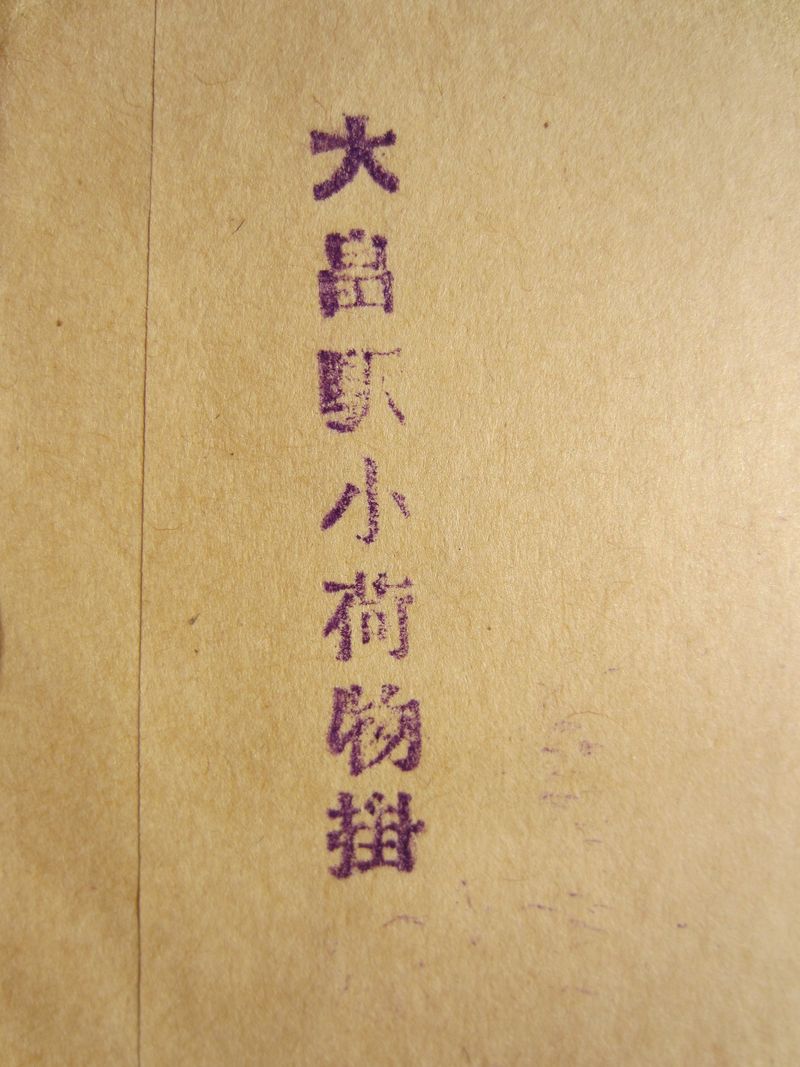 大畠駅小荷物掛